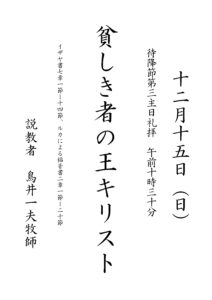 十二月十五日（日）
待降節第三主日礼拝　午前十時三十分
貧しき者の王キリスト
イザヤ書七章一節－十四節、ルカによる福音書二章一節－二十節
説教者　鳥井一夫牧師